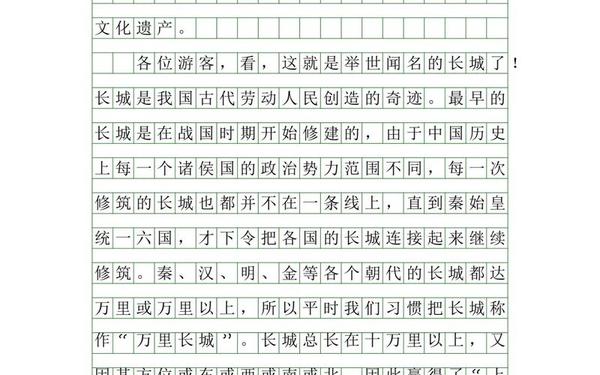 文化遗产。
各位游客，看，这就是举世闻名的长城了！
长城是我国古代劳动人民创造的奇迹。最早的
长城是在战国时期开始修建的，由于中国历史
上每一个诸侯国的政治势力范围不同，每一次
修筑的长城也都并不在一条线上，直到秦始皇
统一六国，才下令把各国的长城连接起来继续
修筑。秦、汉、明、金等各个朝代的长城都达
万里或万里以上，所以平时我们习惯把长城称
作“万里长城”。长城总长在十万里以上，又
因其方位或东或西或南或北，因此赢得了“上